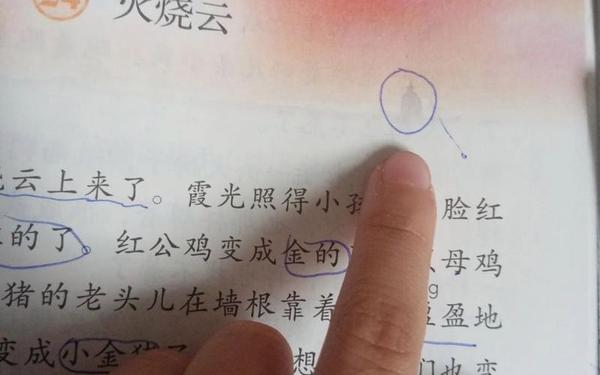 24 火烧云
云上来了。霞光照得小 脸红
的了。红公鸡变成金的 母鸡
猪的老头儿在墙根靠着 盈地
变成小金 了 想 们也变